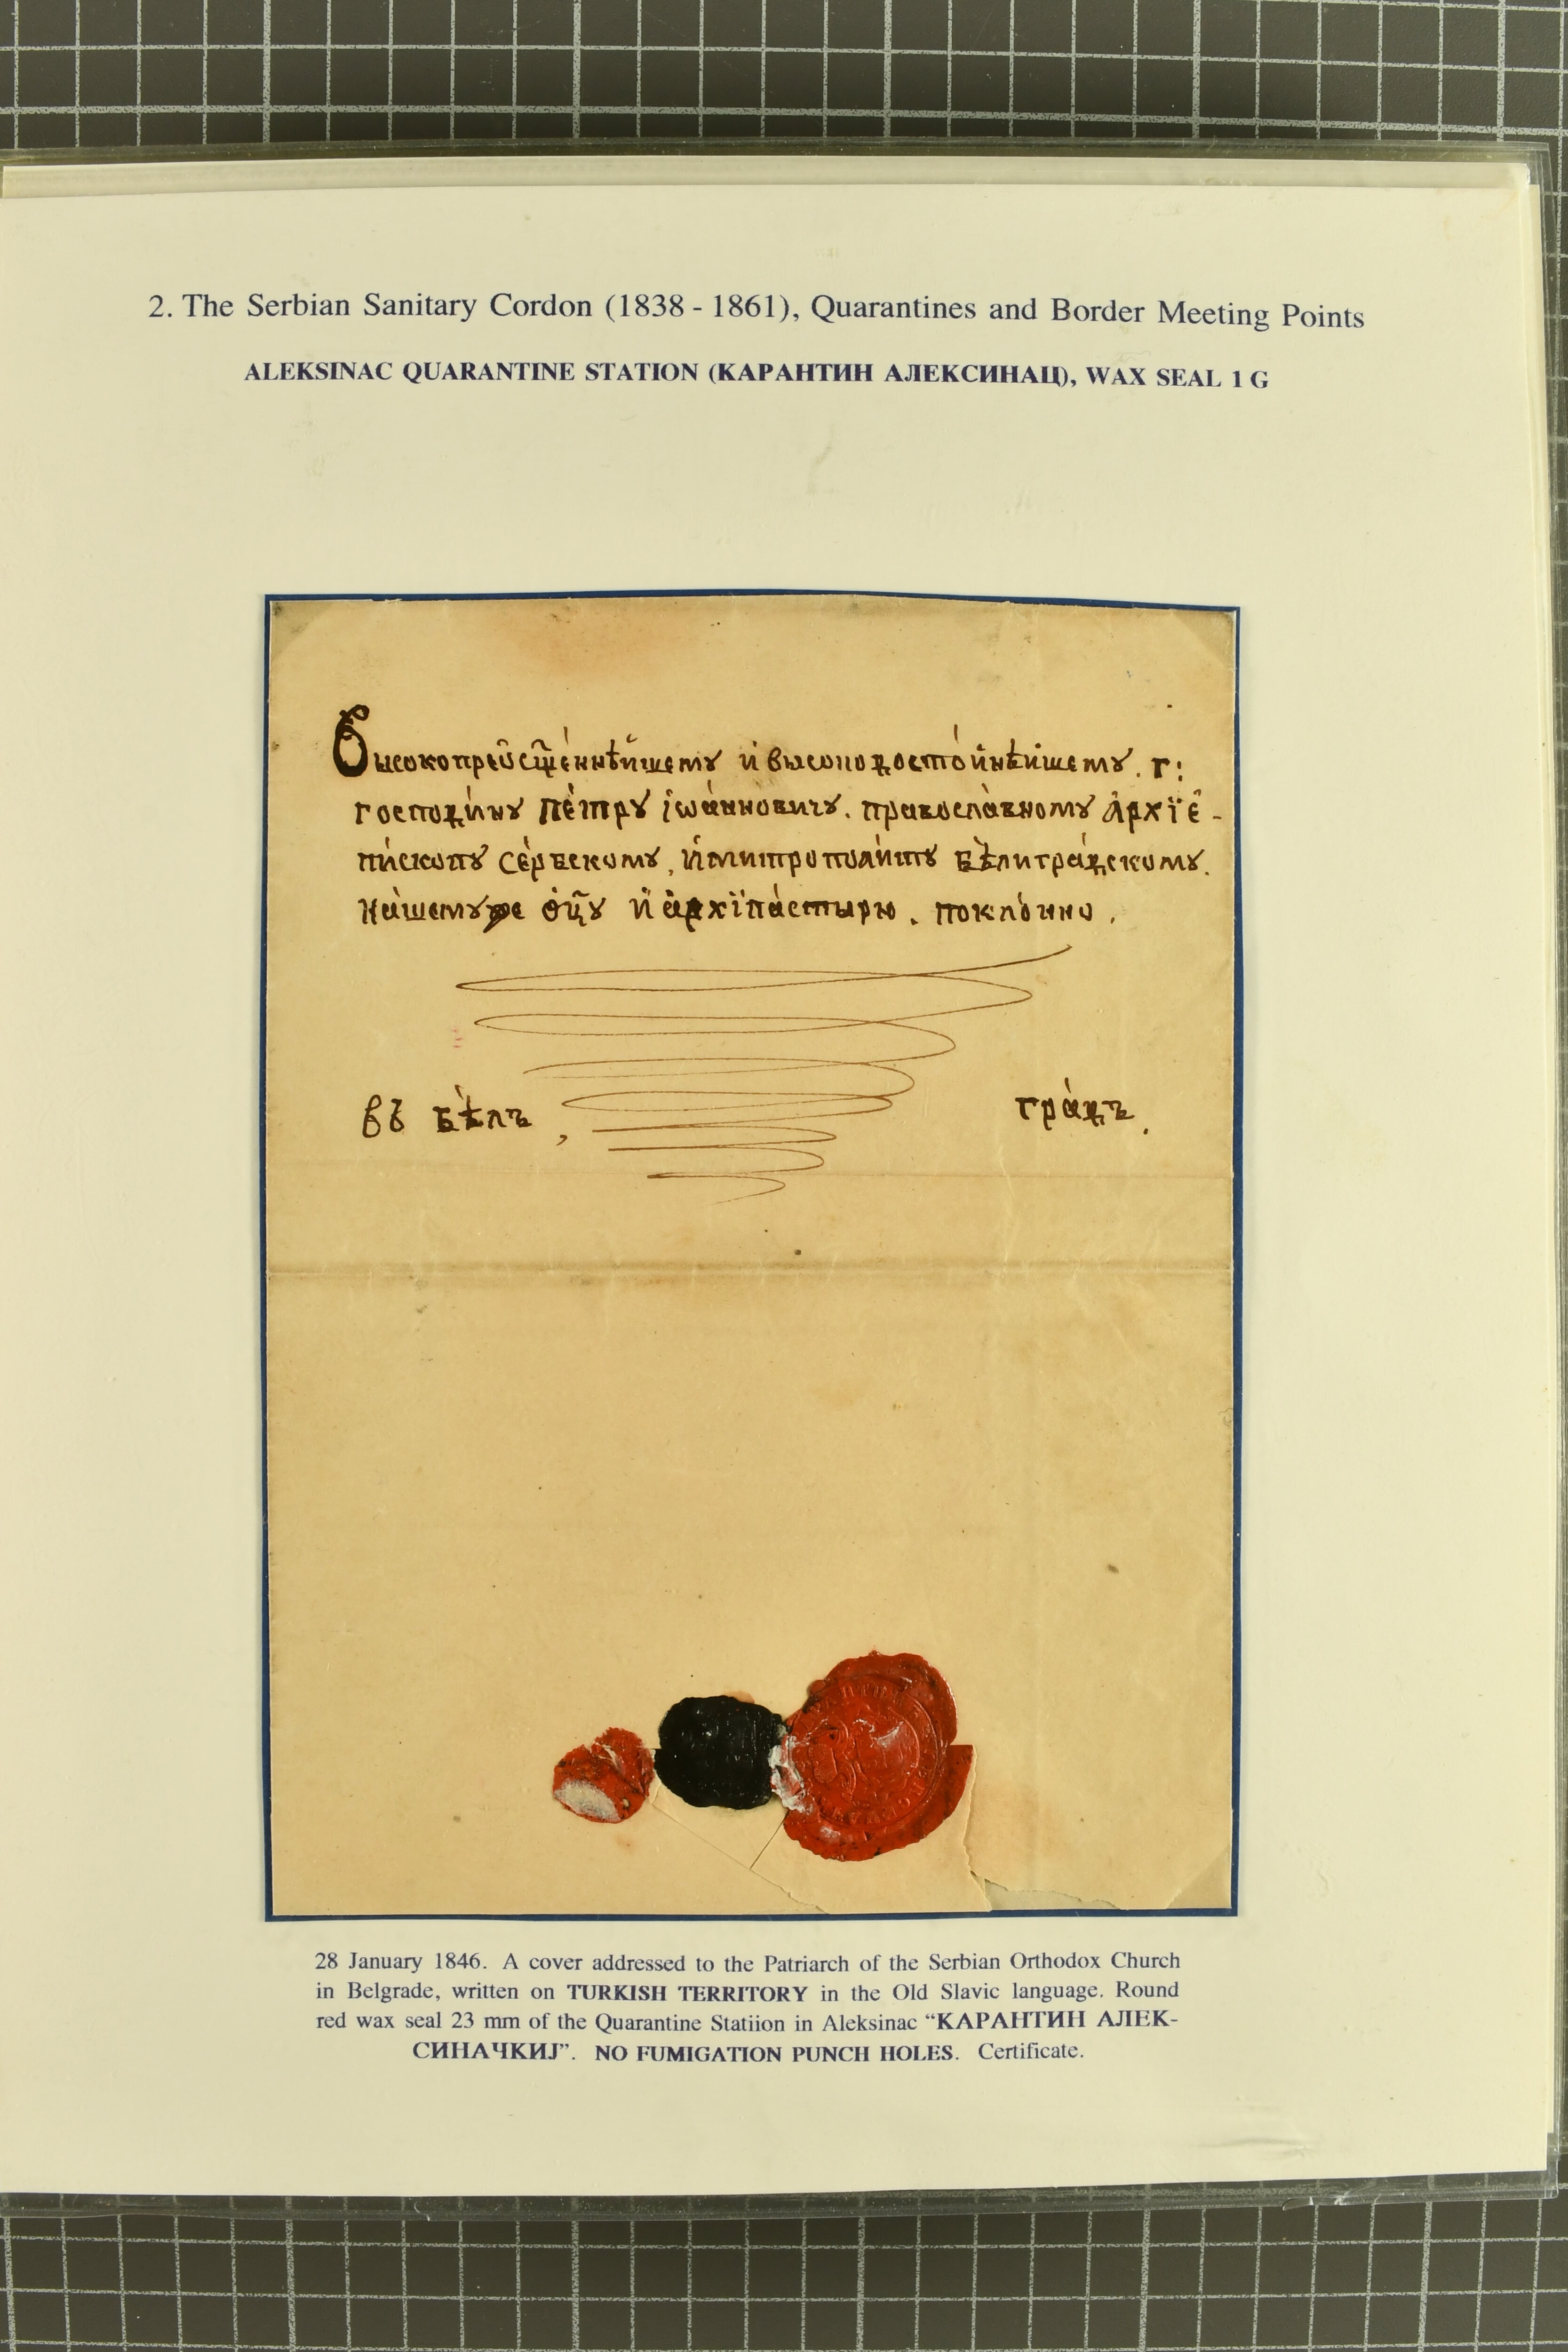 2. The Serbian Sanitary Cordon (1838 - 1861), Quarantines and Border Meeting Points
ALEKSINAC QUARANTINE STATION (КАРАНТИН АЛЕКСИНАЦ), WAX SEAL 1 G
Высокопреѻс҃щѣ́ннѣйшему и҆ высокодосто́йнѣйшему. г:
господи́ну Пе́тру і҆ѡа́нновичу. православному А҆рхїе҆-
пи́скопу Се́рбскому, и҆ митрополи́ту Бѣлиградскому.
На́шемуже ѻ҆ц҃у и҆ а҆рхїпа́стырю. покло́нно.
въ Бѣлъ, гра́дъ.
28 January 1846. A cover addressed to the Patriarch of the Serbian Orthodox Church
in Belgrade, written on TURKISH TERRITORY in the Old Slavic language. Round
red wax seal 23 mm of the Quarantine Statiion in Aleksinac “КАРАНТИН АЛЕК-
СИНАЧКИЈ”. NO FUMIGATION PUNCH HOLES. Certificate.